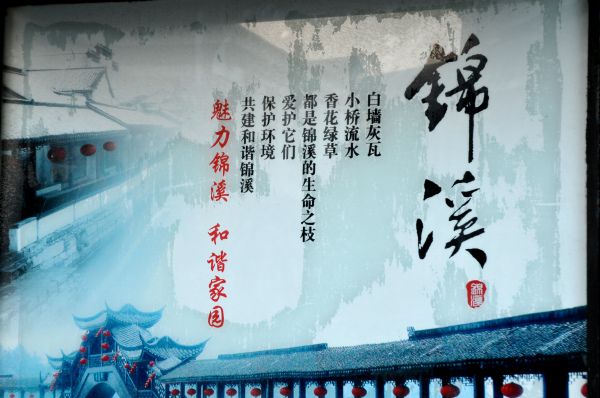 錦溪
錦溪
白墙灰瓦
小桥流水
香花绿草
都是锦溪的生命之枝
爱护它们
保护环境
共建和谐锦溪
魅力锦溪 和谐家园